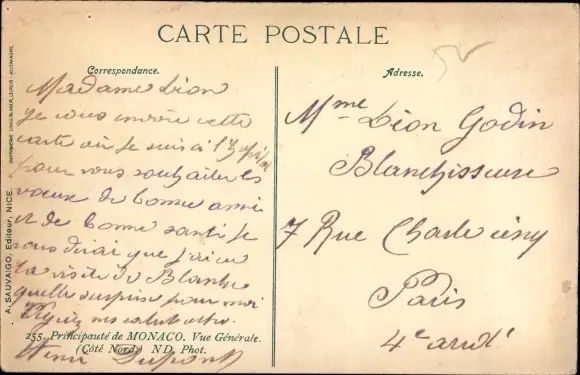 CARTE POSTALE
Correspondance.
Madame Lion
je vous envoie cette
carte où je suis à
pour vous souhaiter les
vœux de bonne anné
et de bonne santé je
vous dirai que j'ai eu
la visite de Blanche
quelle surprise pour moi
255. Principauté de MONACO. Vue Générale.
(Côté Nord) ND. Phot.
Henri Dupont
A. SAUVAIGO, Editeur, NICE.
Adresse.
Mme Lion Godin
Blanchisseuse
7 Rue Charle
Paris
4e arrdt